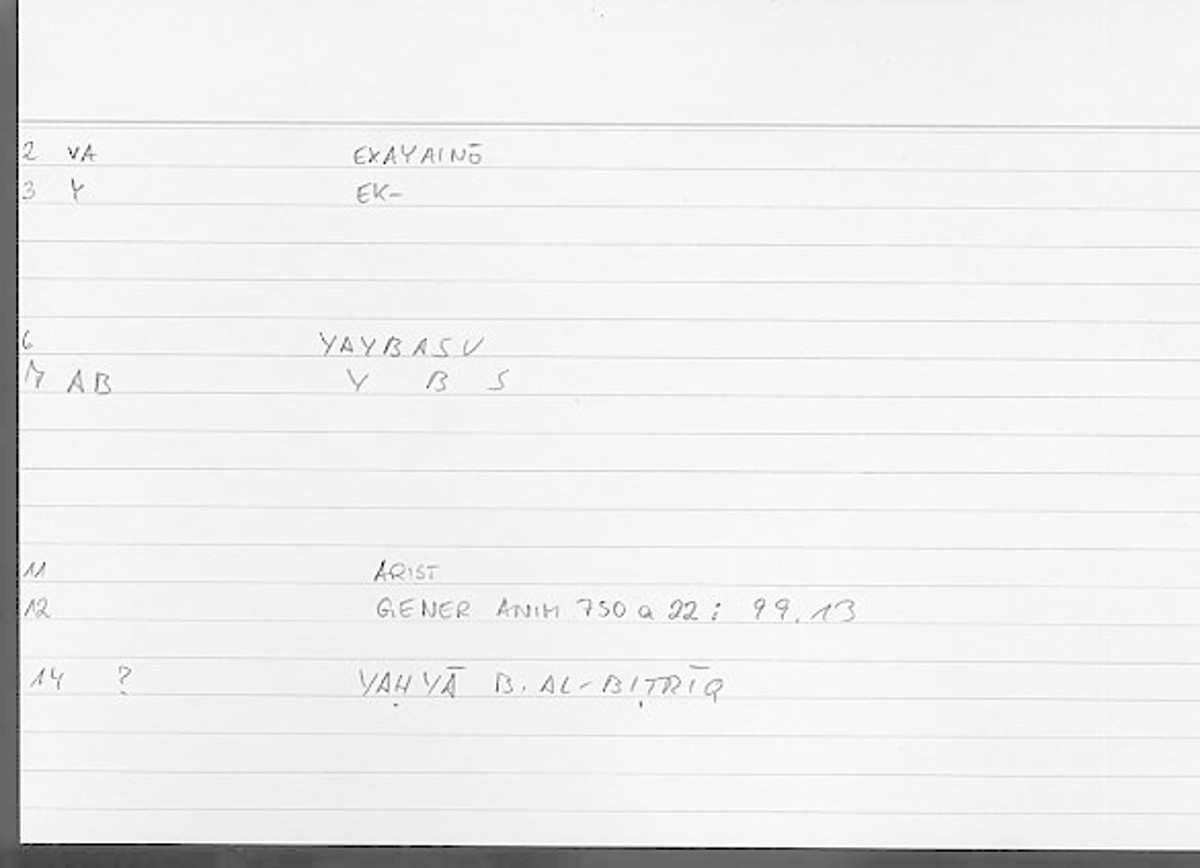 2 VA EXAYAINŌ
3 Y EK-
6 YAYBASU
7 AB Y B S
11 ARIST
12 GENER ANIM 750 a 22 ; 99.13
14 ? YAḤYĀ B. AL-BIṬRĪQ